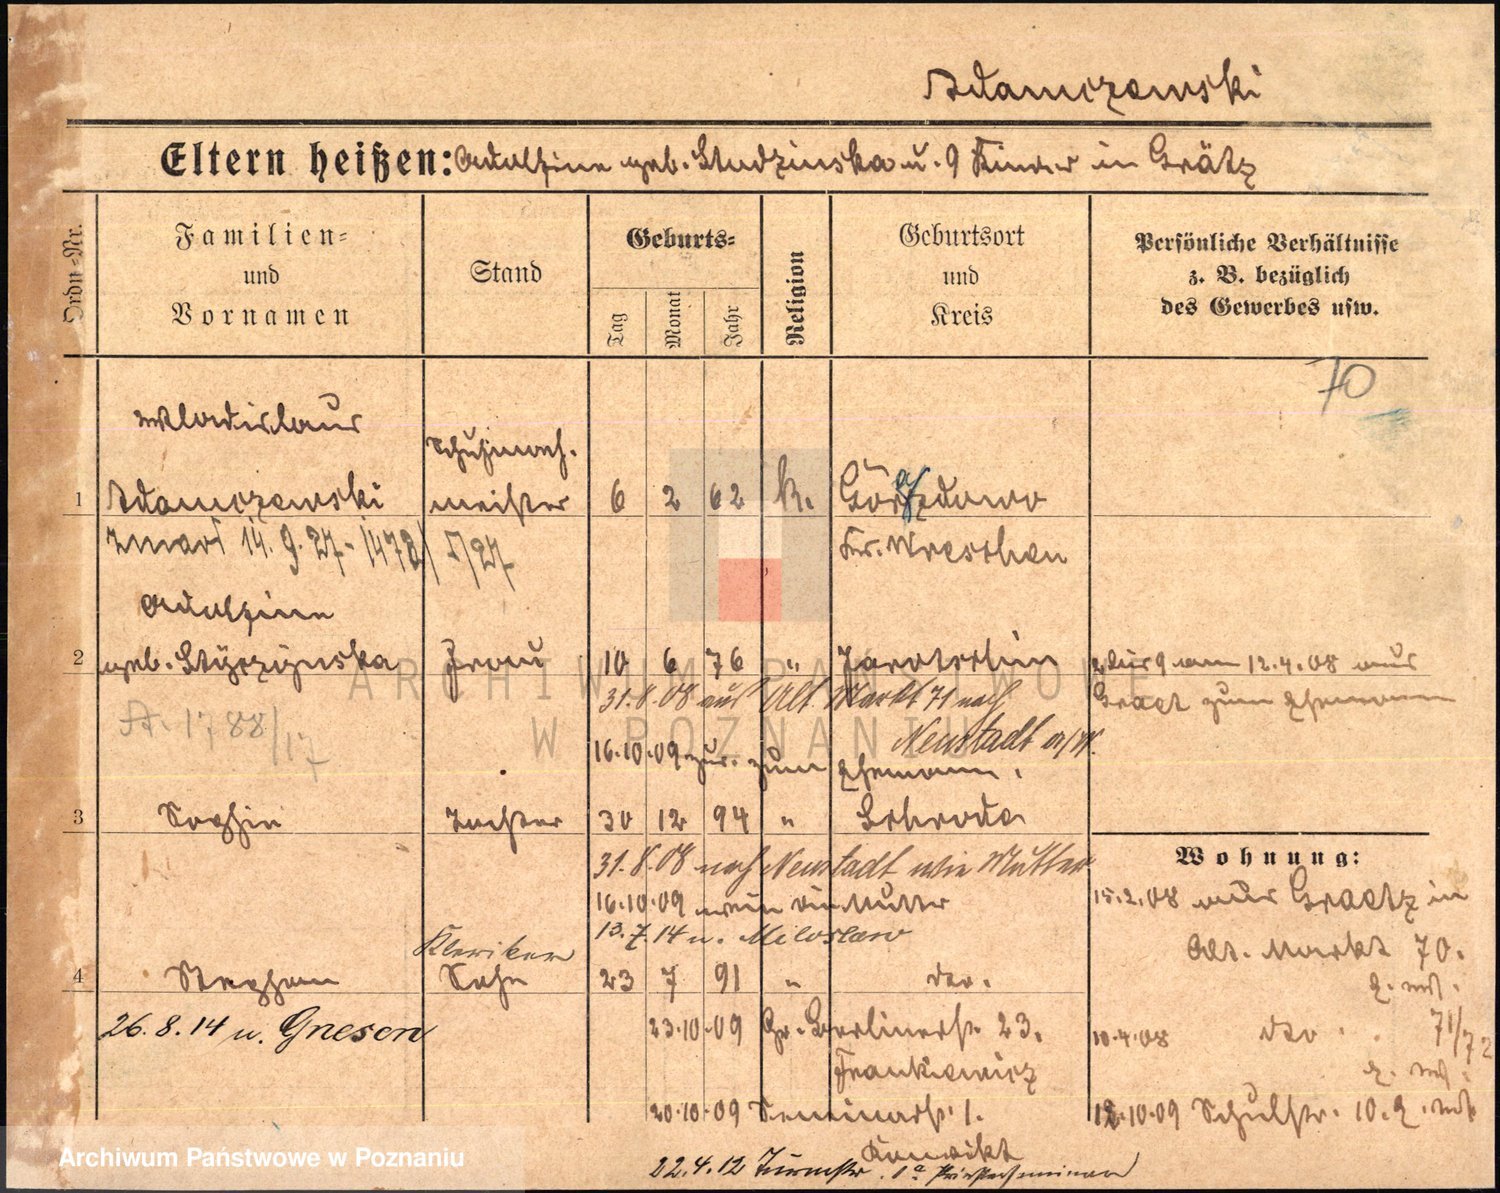 Adamczewski
Eltern heißen: Adolfine geb. Studzinska u. 9 Kinder in Grätz
Ordn.-Nr.
Familien-
und
Vornamen
Stand
Geburts-
Tag
Monat
Jahr
Religion
Geburtsort
und
Kreis
Persönliche Verhältnisse
z. B. bezüglich
des Gewerbes usw.
70
Wladislaus
Schuhmach.
1 Adamczewski meister 6 2 62 k. Görazdowo
zmarł 14.9.27 - 1478/V/27 Kr. Wreschen
Adolfine
2 geb. Frau 10 6 76 " Jarotschin 2 bis 9 am 12.4.08 aus
31.8.08 aus Alt. Markt 71 nach Graetz zum Ehemann
A. 1788/17
Neustadt a/W.
16.10.09 zur. zum Ehemann.
3 Sophie Tochter 30 12 94 " Schroda
Wohnung:
31.8.08 nach Neustadt wie Mutter
15.2.08 aus Graetz in
16.10.09 wie Mutter
13.7.14 n. Miloslaw
Alt. Markt 70.
Kleriker
4 Stephan Sohn 23 7 91 " dto.
26.8.14 n. Gnesen
23.10.09 Gr. Berlinerstr. 23.
10.4.08 dto. 71/72
Frankiewicz
20.10.09 Seminarstr. 1.
12.10.09 Schulstr. 10.
Konvikt
22.4.12 Turmstr. 1a Priesterseminar
ARCHIWUM PAŃSTWOWE
W POZNANIU
Archiwum Państwowe w Poznaniu